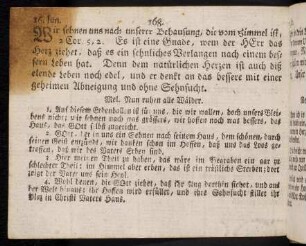 16. Jan. 168.
Wir sehnen uns nach unserer Behausung, die vom Himmel ist,
2 Cor. 5, 2. Es ist eine Gnade, wem der HErr das
Herz ziehet, daß es ein sehnliches Verlangen nach einem bes-
sern Leben hat. Denn dem natürlichen Herzen ist auch diß
elende Leben noch edel, und er denkt an das bessere mit einer
geheimen Abneigung und ohne Sehnsucht.
Mel. Nun ruhen alle Wälder.
1. Auf diesem Erdenballen ist für uns, die wir wallen, doch unsers Blei-
bens nicht; wir hoffen noch was bessers, wir hoffen noch was grössers, das
Haus, das GOtt selbst zuricht.
2. GOtt, leg ein Sehnen nach seinem Haus, dem schönen, durch
seinen Geist entzündt, wir denken schon im Hoffen, daß uns das Loos ge-
troffen, daß wir des Vaters Erben sind.
3. Hier meinen Theil zu haben, das wäre im Begraben ein gar zu
schlechter Theil; im Himmel aber erben, das ist ein redliches Streben; dort
zeige der Vater uns sein Heil.
4. Wohl denen, die GOtt ziehet, daß ihr Aug dorthin siehet, und aus
der Welt hinaus; ihr Hoffen wird erfüllet, und ihre Sehnsucht stillet ihr
Platz in Christi Vaters Haus.